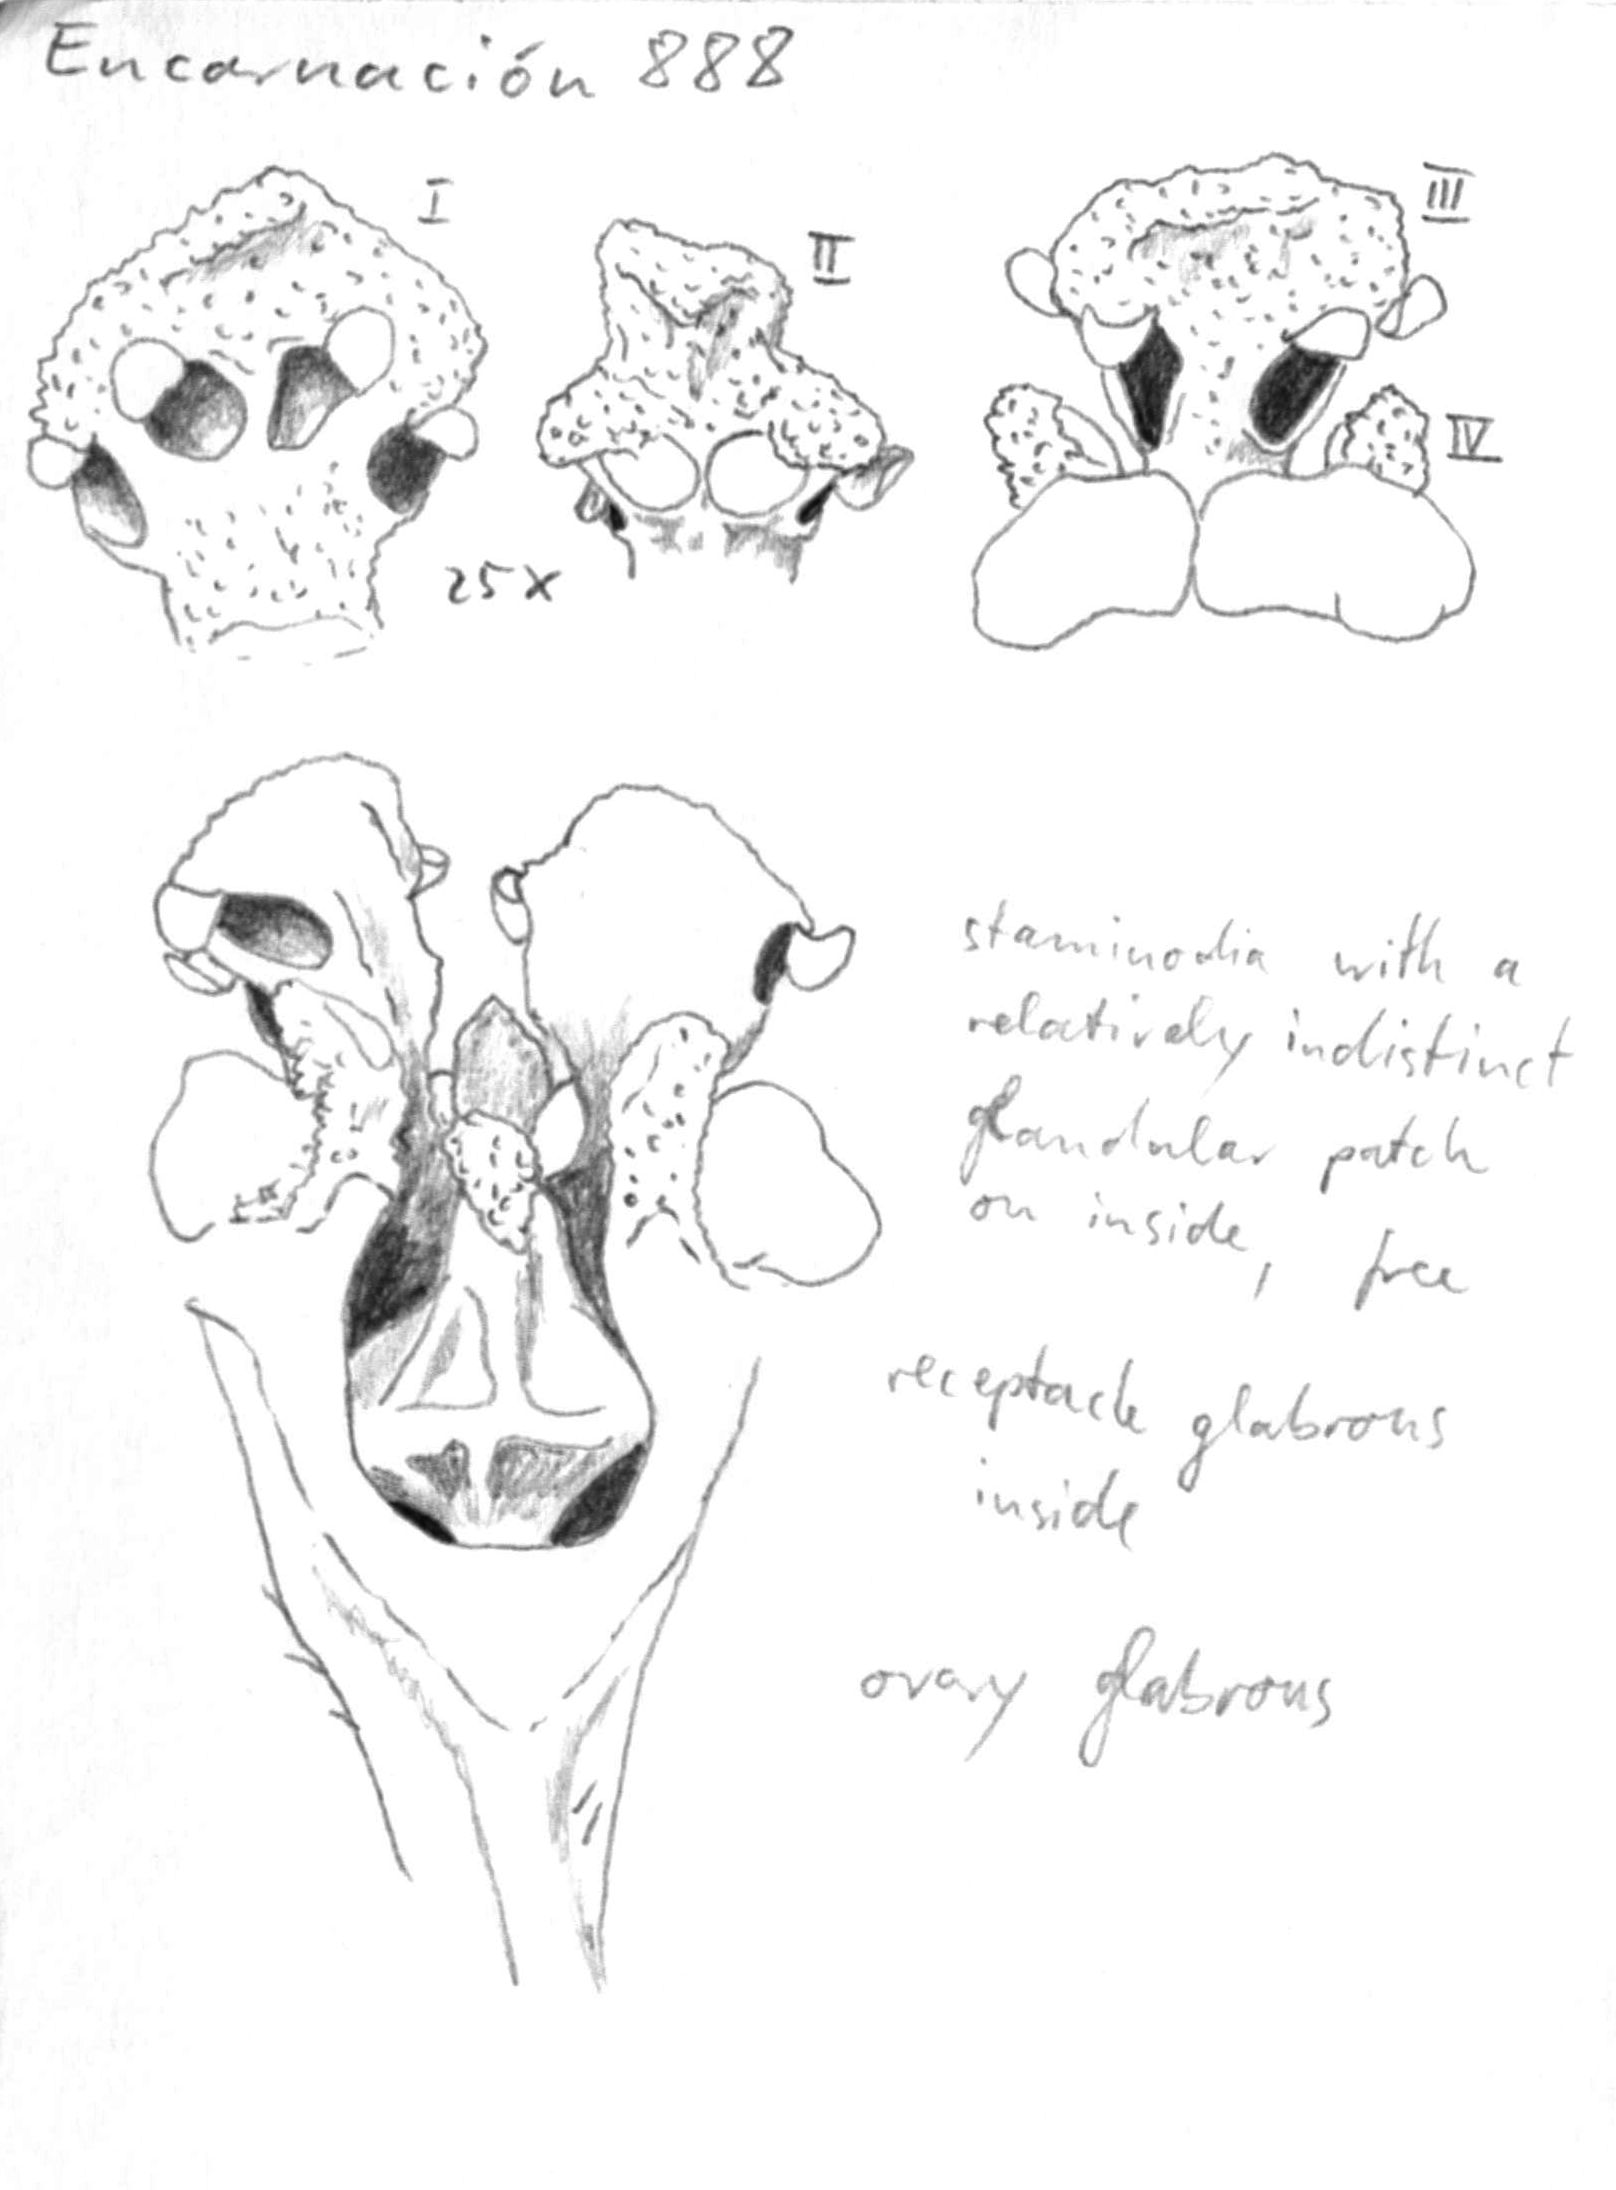 Encarnación 888
I
II
III
IV
25x
staminodia with a
relatively indistinct
glandular patch
on inside, free
receptacle glabrous
inside
ovary glabrous